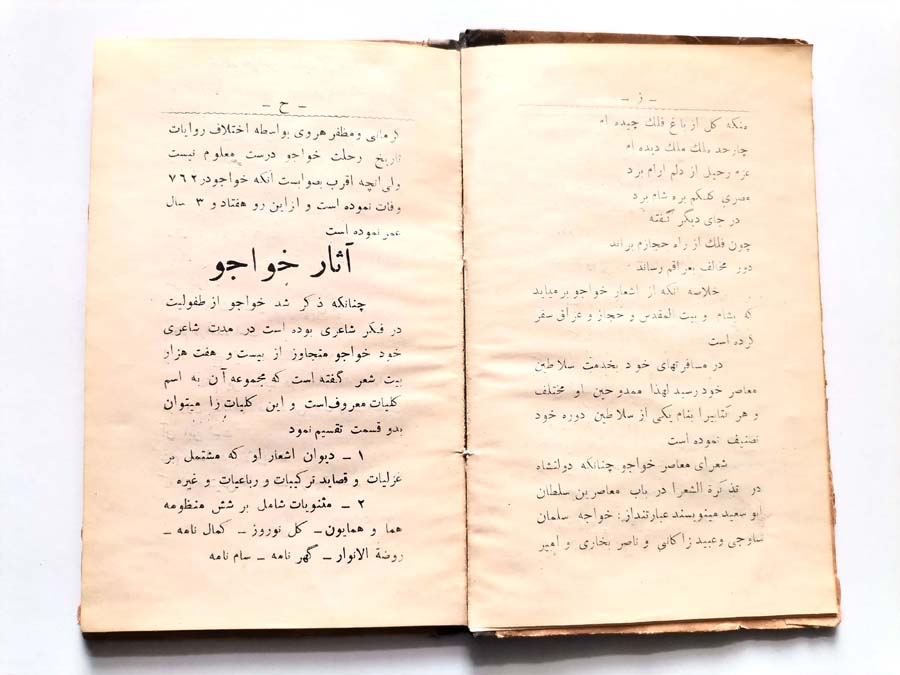 ـ ز ـ
منکه کل از باغ فلك چیده ام
چارحد ملك ملك دیده ام
عزم رحیل از دلم ارام برد
مصری کلکم بره شام برد
در جای دیگر گفته
چون فلك از راه حجازم براند
دور مخالف بعراقم رساند
خلاصه انکه از اشعار خواجو برمیاید
که بشام و بیت المقدس و حجاز و عراق سفر
کرده است
در مسافرتهای خود بخدمت سلاطین
معاصر خود رسید لهذا ممدوحین او مختلف
و هر کتابیرا بنام یکی از سلاطین دوره خود
تصنیف نموده است
شعرای معاصر خواجو چنانکه دولتشاه
در تذکرة الشعرا در باب معاصرین سلطان
ابو سعید مینویسند عبارتنداز: خواجه سلمان
ساوجی وعبید زاکانی و ناصر بخاری و امیر
ـ ح ـ
کرمانی ومظفر هروی بواسطه اختلاف روایات
تاریخ رحلت خواجو درست معلوم نیست
ولی‌آنچه اقرب بصوابست آنکه خواجودر ۷٦۲
وفات نموده است و ازاین رو هفتاد و ۳ سال
عمر نموده است
آثار خواجو
چنانکه ذکر شد خواجو از طفولیت
در فکر شاعری بوده است در مدت شاعری
خود خواجو متجاوز از بیست و هفت هزار
بیت شعر گفته است که مجموعه آن به اسم
کلیات معروف‌است و این کلیات را میتوان
بدو قسمت تقسیم نمود
۱ ـ دیوان اشعار او که مشتمل بر
غزلیات و قصاید ترکیبات و رباعیات و غیره
۲ ـ مثنویات شامل بر شش منظومه
هما و همایون ـ کل نوروز ـ کمال نامه ـ
روضة الانوار ـ گهر نامه ـ سام نامه